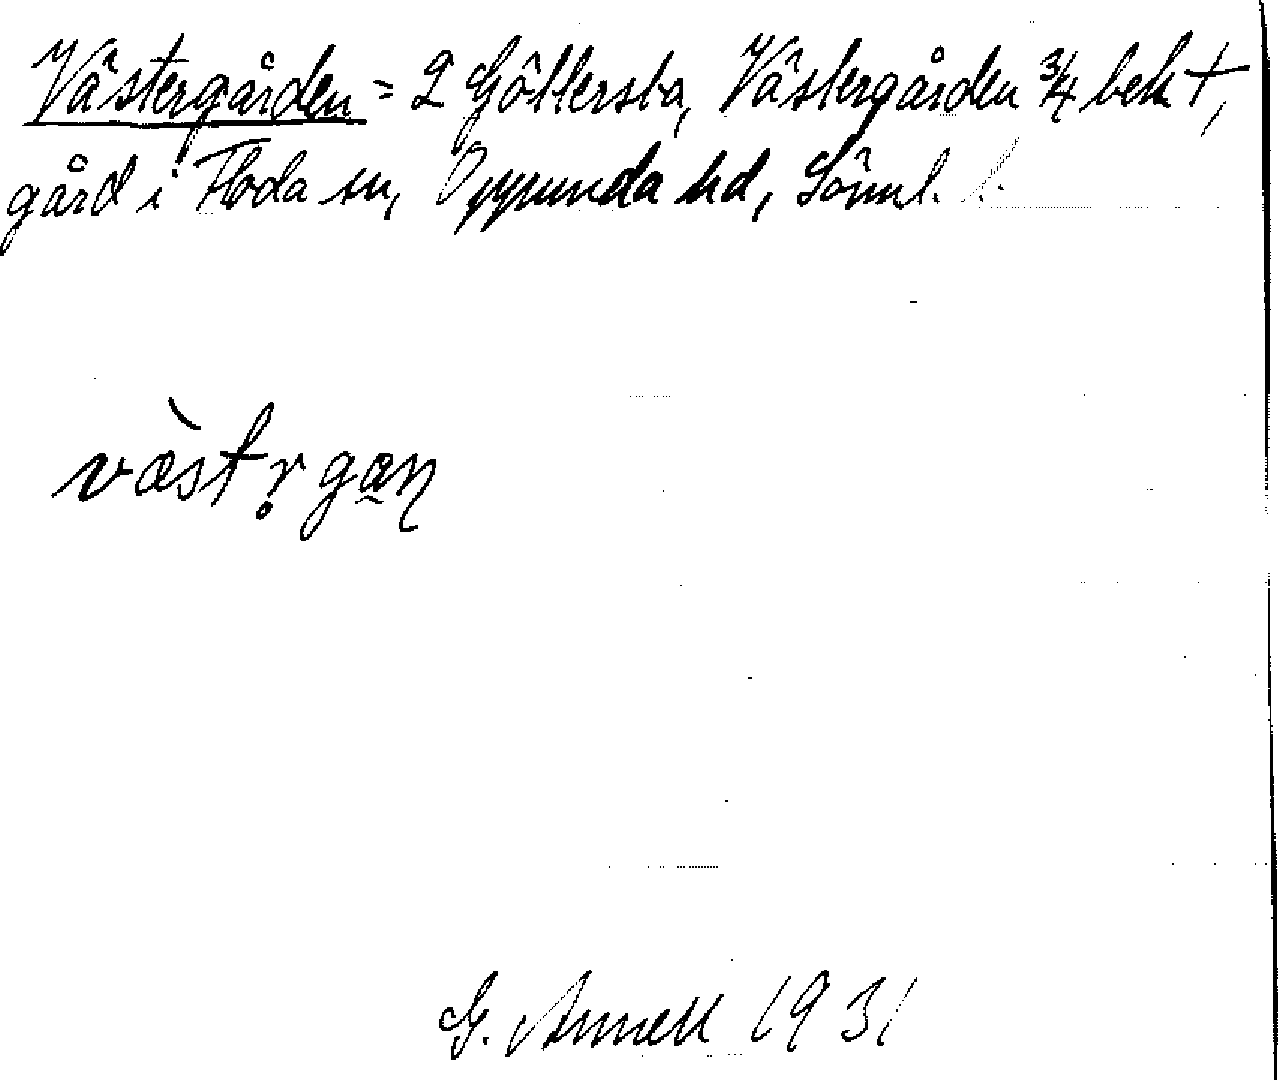 Västergården = 2 Göttersta, Västergården 3/4 beh †,
gård i Floda sn, Oppunda hd, Sörml. l.
væ̀str̥gan
G. Annell 1931